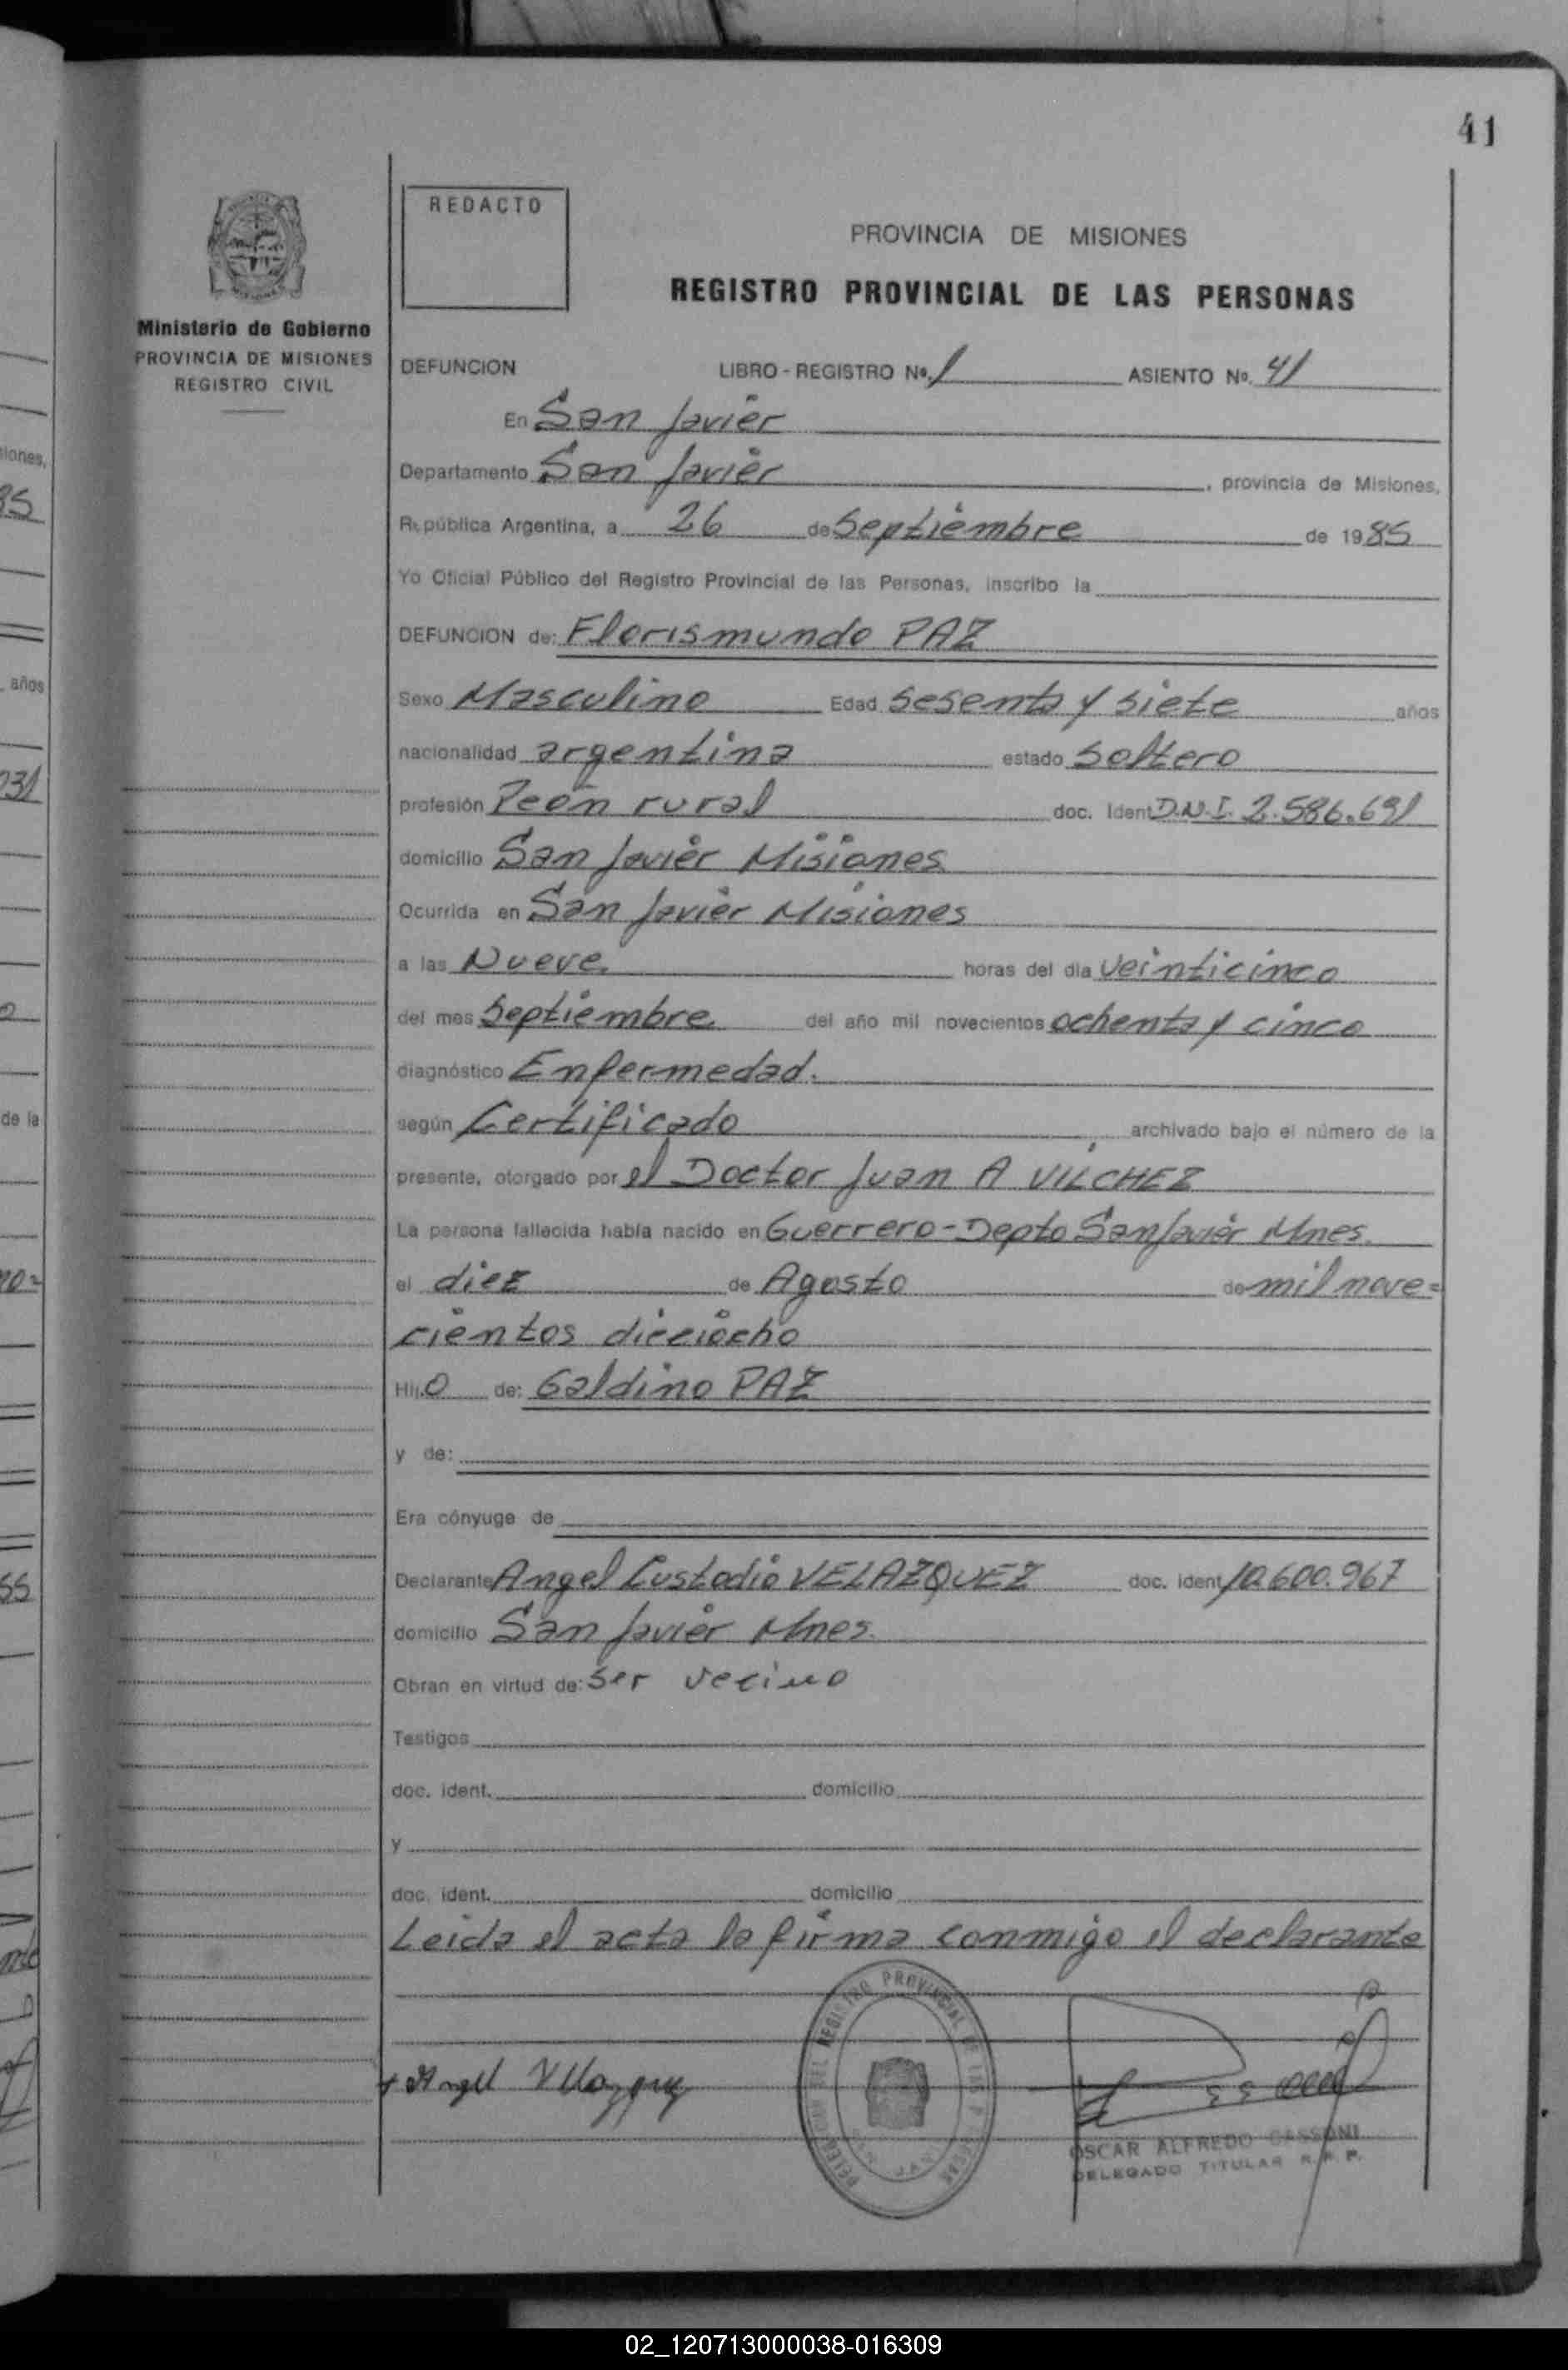 41
REDACTO
PROVINCIA DE MISIONES
REGISTRO PROVINCIAL DE LAS PERSONAS
Ministerio de Gobierno
PROVINCIA DE MISIONES
REGISTRO CIVIL
DEFUNCION LIBRO - REGISTRO Nº. 1 ASIENTO Nº. 41
En San Javier
Departamento San Javier, provincia de Misiones,
República Argentina, a 26 de Septiembre de 1985
Yo Oficial Público del Registro Provincial de las Personas, inscribo la
DEFUNCION de: Florismundo PAZ
Sexo Masculino Edad Sesenta y siete años
nacionalidad argentina estado Soltero
profesión Peón rural doc. Ident. D.N.I. 2.586.691
domicilio San Javier Misiones
Ocurrida en San Javier Misiones
a las Nueve horas del día veinticinco
del mes Septiembre del año mil novecientos ochenta y cinco
diagnóstico Enfermedad.
según Certificado archivado bajo el número de la
presente, otorgado por el Doctor Juan A VILCHEZ
La persona fallecida había nacido en Guerrero-Depto San Javier Mnes.
el diez de Agosto de mil nove=
cientos dieciocho
Hijo de: Galdino PAZ
y de:
Era cónyuge de
Declarante Angel Custodio VELAZQUEZ doc. ident. 10.600.967
domicilio San Javier Mnes.
Obran en virtud de: Ser vecino
Testigos
doc. ident. domicilio
y
doc. ident. domicilio
Leida el acta la firma conmigo el declarante
DELEGACION DEL REGISTRO PROVINCIAL DE LAS PERSONAS
OSCAR ALFREDO GASSONI
DELEGADO TITULAR R. P. P.
02_120713000038-016309